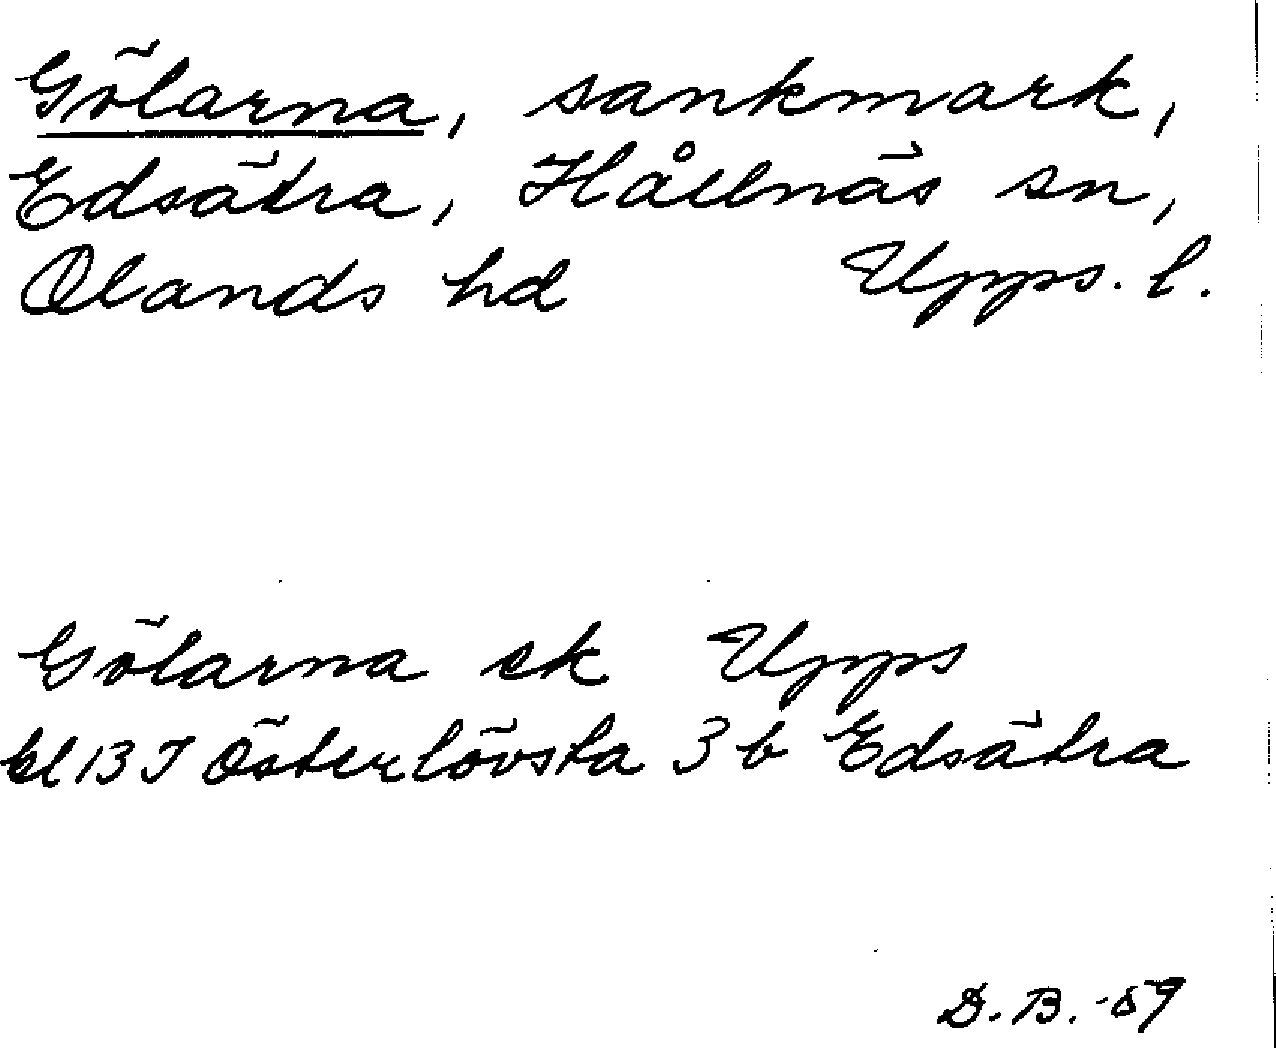 Gölarna, sankmark,
Edsätra, Hållnäs sn,
Olands hd Upps. l.
Gölarna ek Upps
bl 13 I Österlövsta 3 b Edsätra
D. B. -59